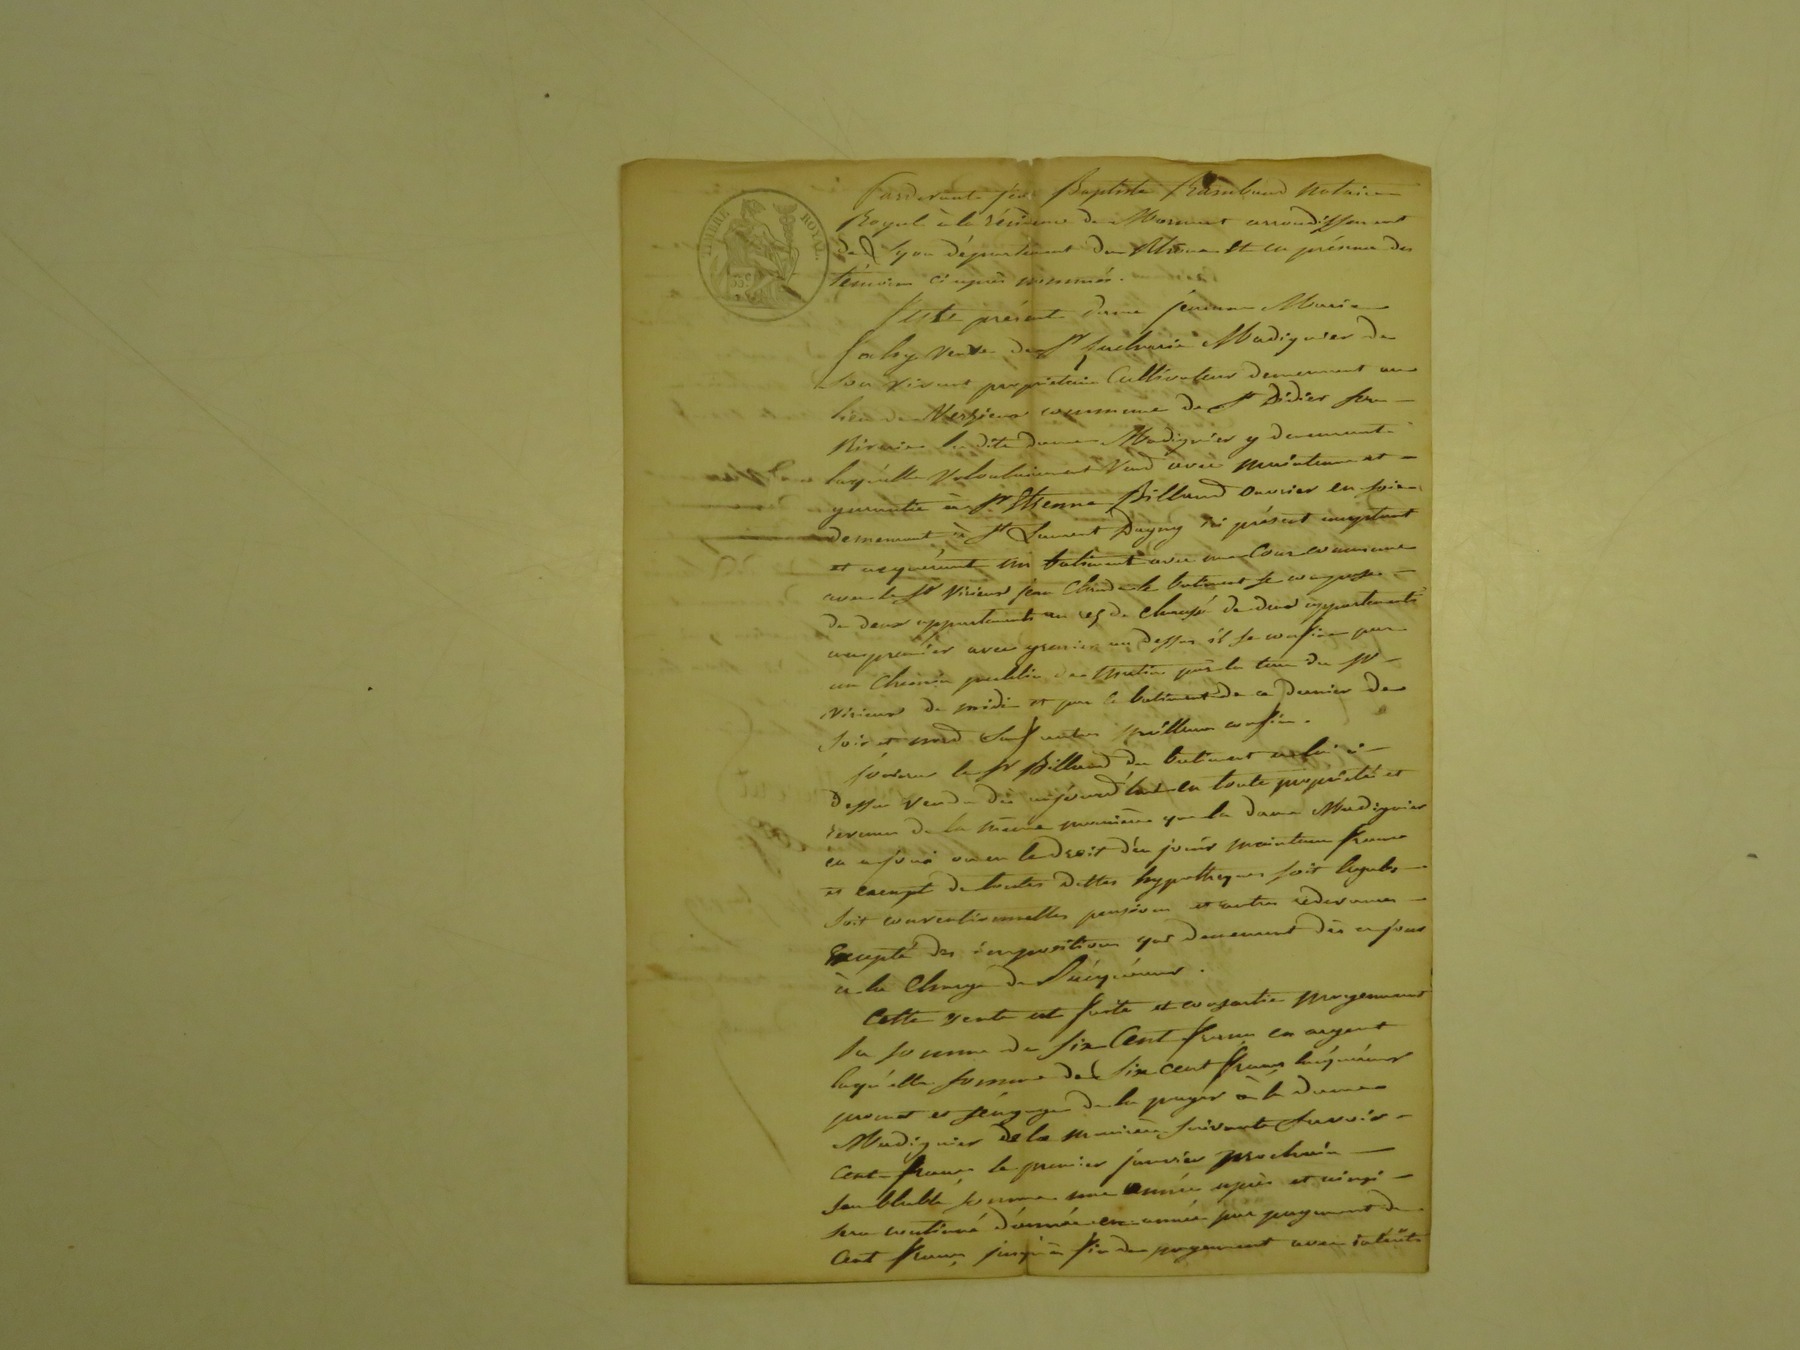 TIMBRE ROYAL
35 c.
Pardevant Jean Baptiste Raimbaud Notaire
Royal à la résidence de Mornant arrondissement
de Lyon département du Rhône et en présence des
témoins ci après nommés.
fut présente dame jeanne Marie
veuve de Sr Madignier de
Son vivant propriétaire Cultivateur demeurant au
lieu de commune de St Didier sous
Riverie la dite dame Madignier y demeurant
laquelle volontairement vend avec maintenue et
garantie à Sr Etienne Billaud ouvrier en soie
demeurant à St Laurent Dagny ici présent acceptant
et acquérant un batiment avec une Cour commune
avec le Sr Virieux jean Claude le batiment se compose
de deux appartements au rez de chaussé de deux appartements
au premier avec grenier au dessus il se confine par
un Chemin public de matin par la terre du Sr
Virieux de midi et par le batiment de ce dernier de
soir et nord Sauf autres meilleurs confins.
jouira le Sr Billaud du batiment à lui ci
dessus vendu dès aujourd'hui en toute propriété et
revenus de la même manière que la dame Madignier
en a joui ou eu le droit d'en jouir maintenu franc
et exempt de toutes dettes hypothèques soit légales
soit conventionnelles pensions et autres redevances
Excepté des impositions qui demeurent dès ce jour
à la Charge de l'acquéreur.
Cette vente est faite et consentie moyennant
la somme de six Cent francs en argent
laquelle somme de Six cent francs l'acquéreur
promet et s'engage de la payer à la dame
Madignier de la manière suivante Savoir
Cent francs le premier janvier prochain
semblable somme une année après et ainsi
sera continué d'année en année par payement de
Cent francs jusqu'à fin de payement avec intérêts